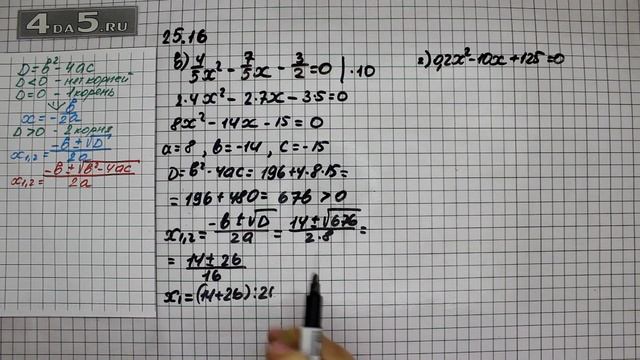 4DA5.RU
D=b²-4ac
D<0 - нет корней
D=0 - 1 корень
x=-b/2a
D>0 - 2 корня
x₁,₂=(-b±√D)/2a
x₁,₂=(-b±√(b²-4ac))/2a
25.16
в) 4/5x² - 7/5x - 3/2=0 |·10
2·4x² - 2·7x - 3·5=0
8x² - 14x - 15 = 0
a=8, b=-14, c=-15
D=b²-4ac=196+4·8·15=
=196+480=676>0
x₁,₂=(-b±√D)/2a=(14±√676)/2·8=
=(14±26)/16
x₁=(14+26):2
г) 0,2x²-10x+125=0